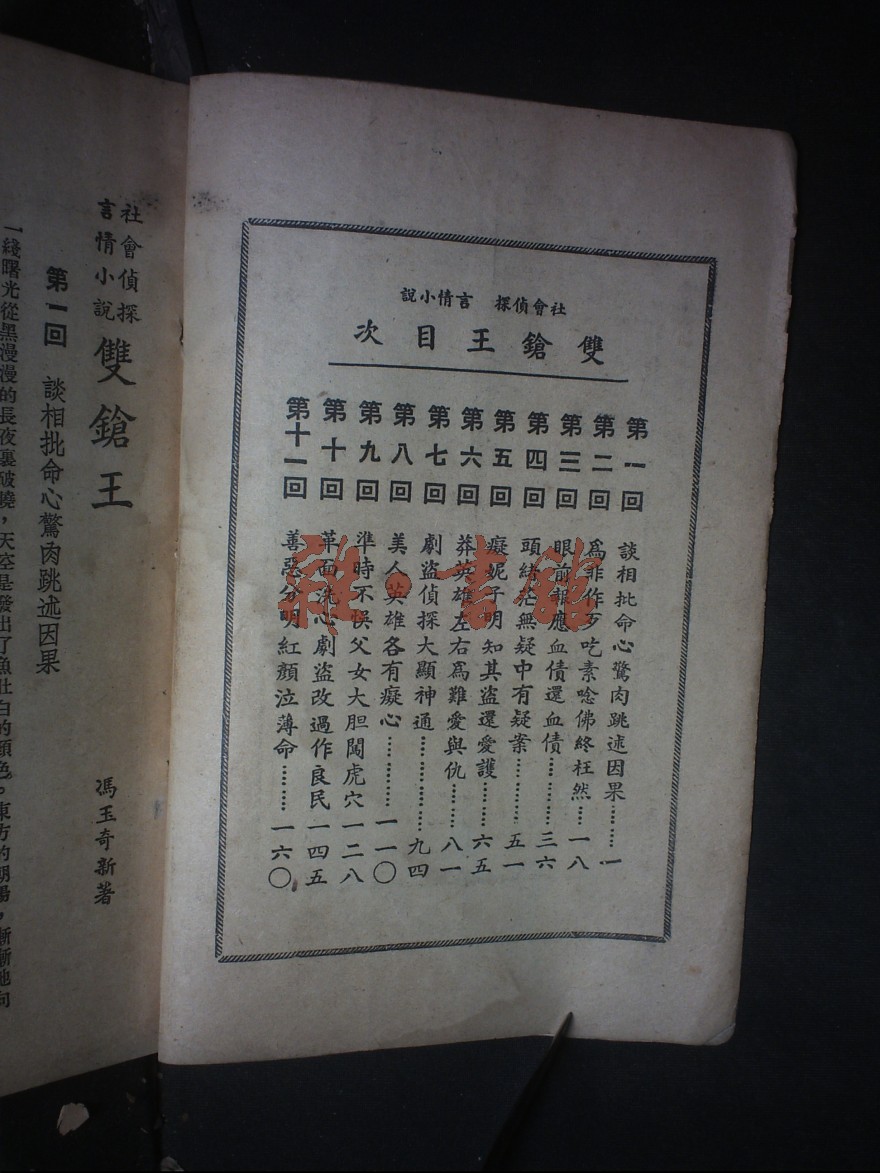 社會偵探 言情小說
雙鎗王目次
第一回 談相批命心驚肉跳述因果………一
第二回 爲非作歹吃素唸佛終枉然…一八
第三回 眼前報應血債還血債………三六
第四回 頭緒茫無疑中有疑案………五一
第五回 癡妮子明知其盜還愛護……六五
第六回 莽英雄左右爲難愛與仇……八一
第七回 劇盜偵探大顯神通…………九四
第八回 美人英雄各有癡心…………一一〇
第九回 準時不悞父女大胆闖虎穴 一二八
第十回 革面洗心劇盜改過作良民 一四五
第十一回 善惡分明紅顏泣薄命………一六〇
雜·書館
社會偵探
言情小說
雙鎗王
馮玉奇新著
第一回 談相批命心驚肉跳述因果
一綫曙光從黑漫漫的長夜裏破曉，天空是發出了魚肚白的顏色。東方的朝陽，漸漸地向